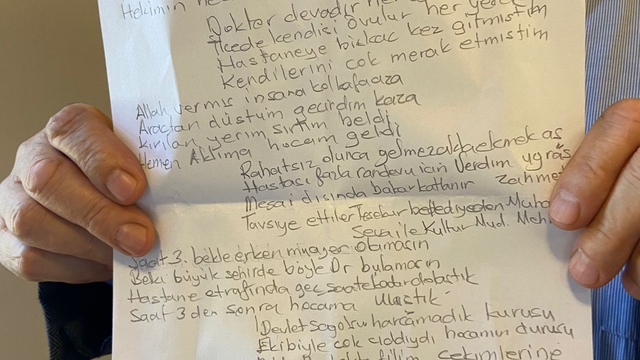 Hekimin
Doktor devadır her yerde
İlcede kendisi övülür her yerde
Hastaneye birkac kez gitmiştim
Kendilerini cok merak etmiştim
Allah vermiş insana kol kafa aza
Araçtan düştüm gecirdim kaza
Kırılan yerim sırtım beldi
Hemen Aklıma hocam geldi
Rahatsız olunca gelmez akla ekmek aş
Hastası fazla randevu icin Verdim uğraş
Mesai dışında babar katlanır zahmet
Tavsiye ettiler belediyeden
Kültür Müd. Meh
Saat 3. bekle erken olamasın
Belki büyük şehirde böyle Dr bulamasın
Hastane etrafında geç saate kadar dolaştık
Saat 3 den sonra hocama Ulaştık
Devlet harcamadık kuruşu
Ekibiyle cok ciddiydi hocamın duruşu
film cekimlerine